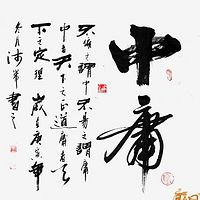 中庸
不偏之謂中不易之謂庸
中者天下之正道庸者天
下之定理 歲在庚寅
冬月 書之